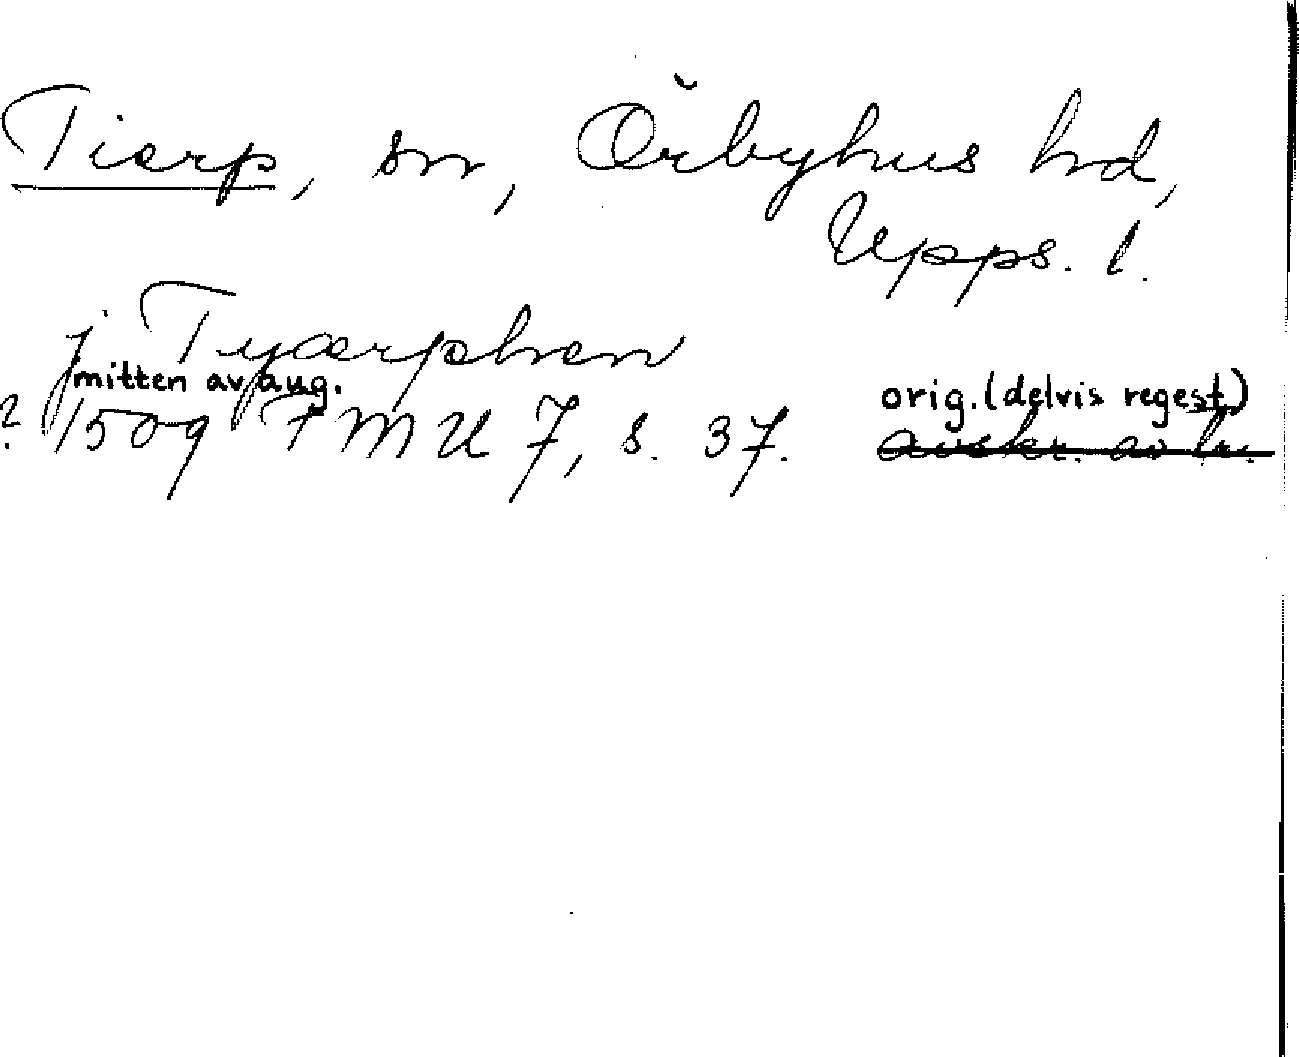 Tierp, sn, Örbyhus hd,
Upps. l.
j Tyærphen
mitten av aug. orig. (delvis regest)
? 1509 FMU 7, s. 37. avskr. av br.